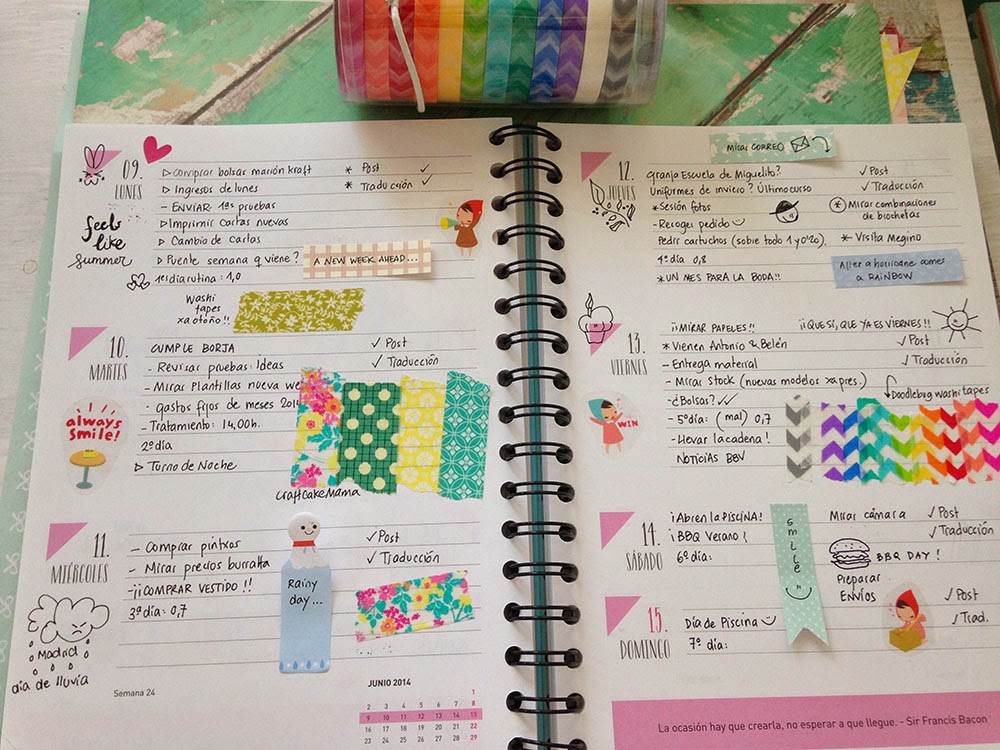 09.
LUNES
▷ Comprar bolsas marión kraft * Post ✓
▷ Ingresos de lunes * Traducción ✓
- ENVIAR 1as pruebas
▷ Imprimir cartas nuevas
▷ Cambio de cartas
▷ Puente semana q viene?
A NEW WEEK AHEAD...
1er día rutina: 1,0
feels
like
summer
Washi
tapes
xa otoño!!
10.
MARTES
CUMPLE BORJA ✓ Post
- Revisar pruebas. Ideas ✓ Traducción
- Mirar Plantillas nueva we
- gastos fijos de meses 2014
- Tratamiento: 14,00h.
2º día
▷ Turno de Noche
always
smile!
CraftCakeMama
11.
MIÉRCOLES
- Comprar pintxos ✓ Post
- Mirar precios burralta ✓ Traducción
- ¡¡COMPRAR VESTIDO!!
3er día: 0,7
Rainy
day...
Madrid
día de lluvia
Semana 24
JUNIO 2014
1
2 3 4 5 6 7 8
9 10 11 12 13 14 15
16 17 18 19 20 21 22
23 24 25 26 27 28 29
Mirar CORREO
12.
JUEVES
Granja Escuela de Miguelito? ✓ Post
Uniformes de invierno? Último curso ✓ Traducción
* Sesión fotos
* Mirar combinaciones
de brochetas
- Recoger pedido
Pedir cartuchos (sobre todo 1 y 0'2). * Visita Megino
4º día 0,8
* UN MES PARA LA BODA!!
After a hurricane comes
a RAINBOW
13.
VIERNES
¡¡MIRAR PAPELES!! ¡¡QUE SÍ, QUE YA ES VIERNES!!
* Vienen Antonio & Belén ✓ Post
- Entrega material ✓ Traducción
- Mirar stock (nuevos modelos xa pres.)
Doodlebug washi tapes
- ¿Bolsas? ✓✓
- 5º día: (mal) 0,7
- Llevar la cadena!
NOTICIAS BBV
WIN
14.
SÁBADO
¡Abren la PISCINA! Mirar cámara ✓ Post
¡BBQ Verano! ✓ Traducción
6º día:
BBQ DAY!
smile
Preparar
ENVÍOS
15.
DOMINGO
Día de Piscina ✓ Post
7º día: ✓ Trad.
La ocasión hay que crearla, no esperar a que llegue. - Sir Francis Bacon